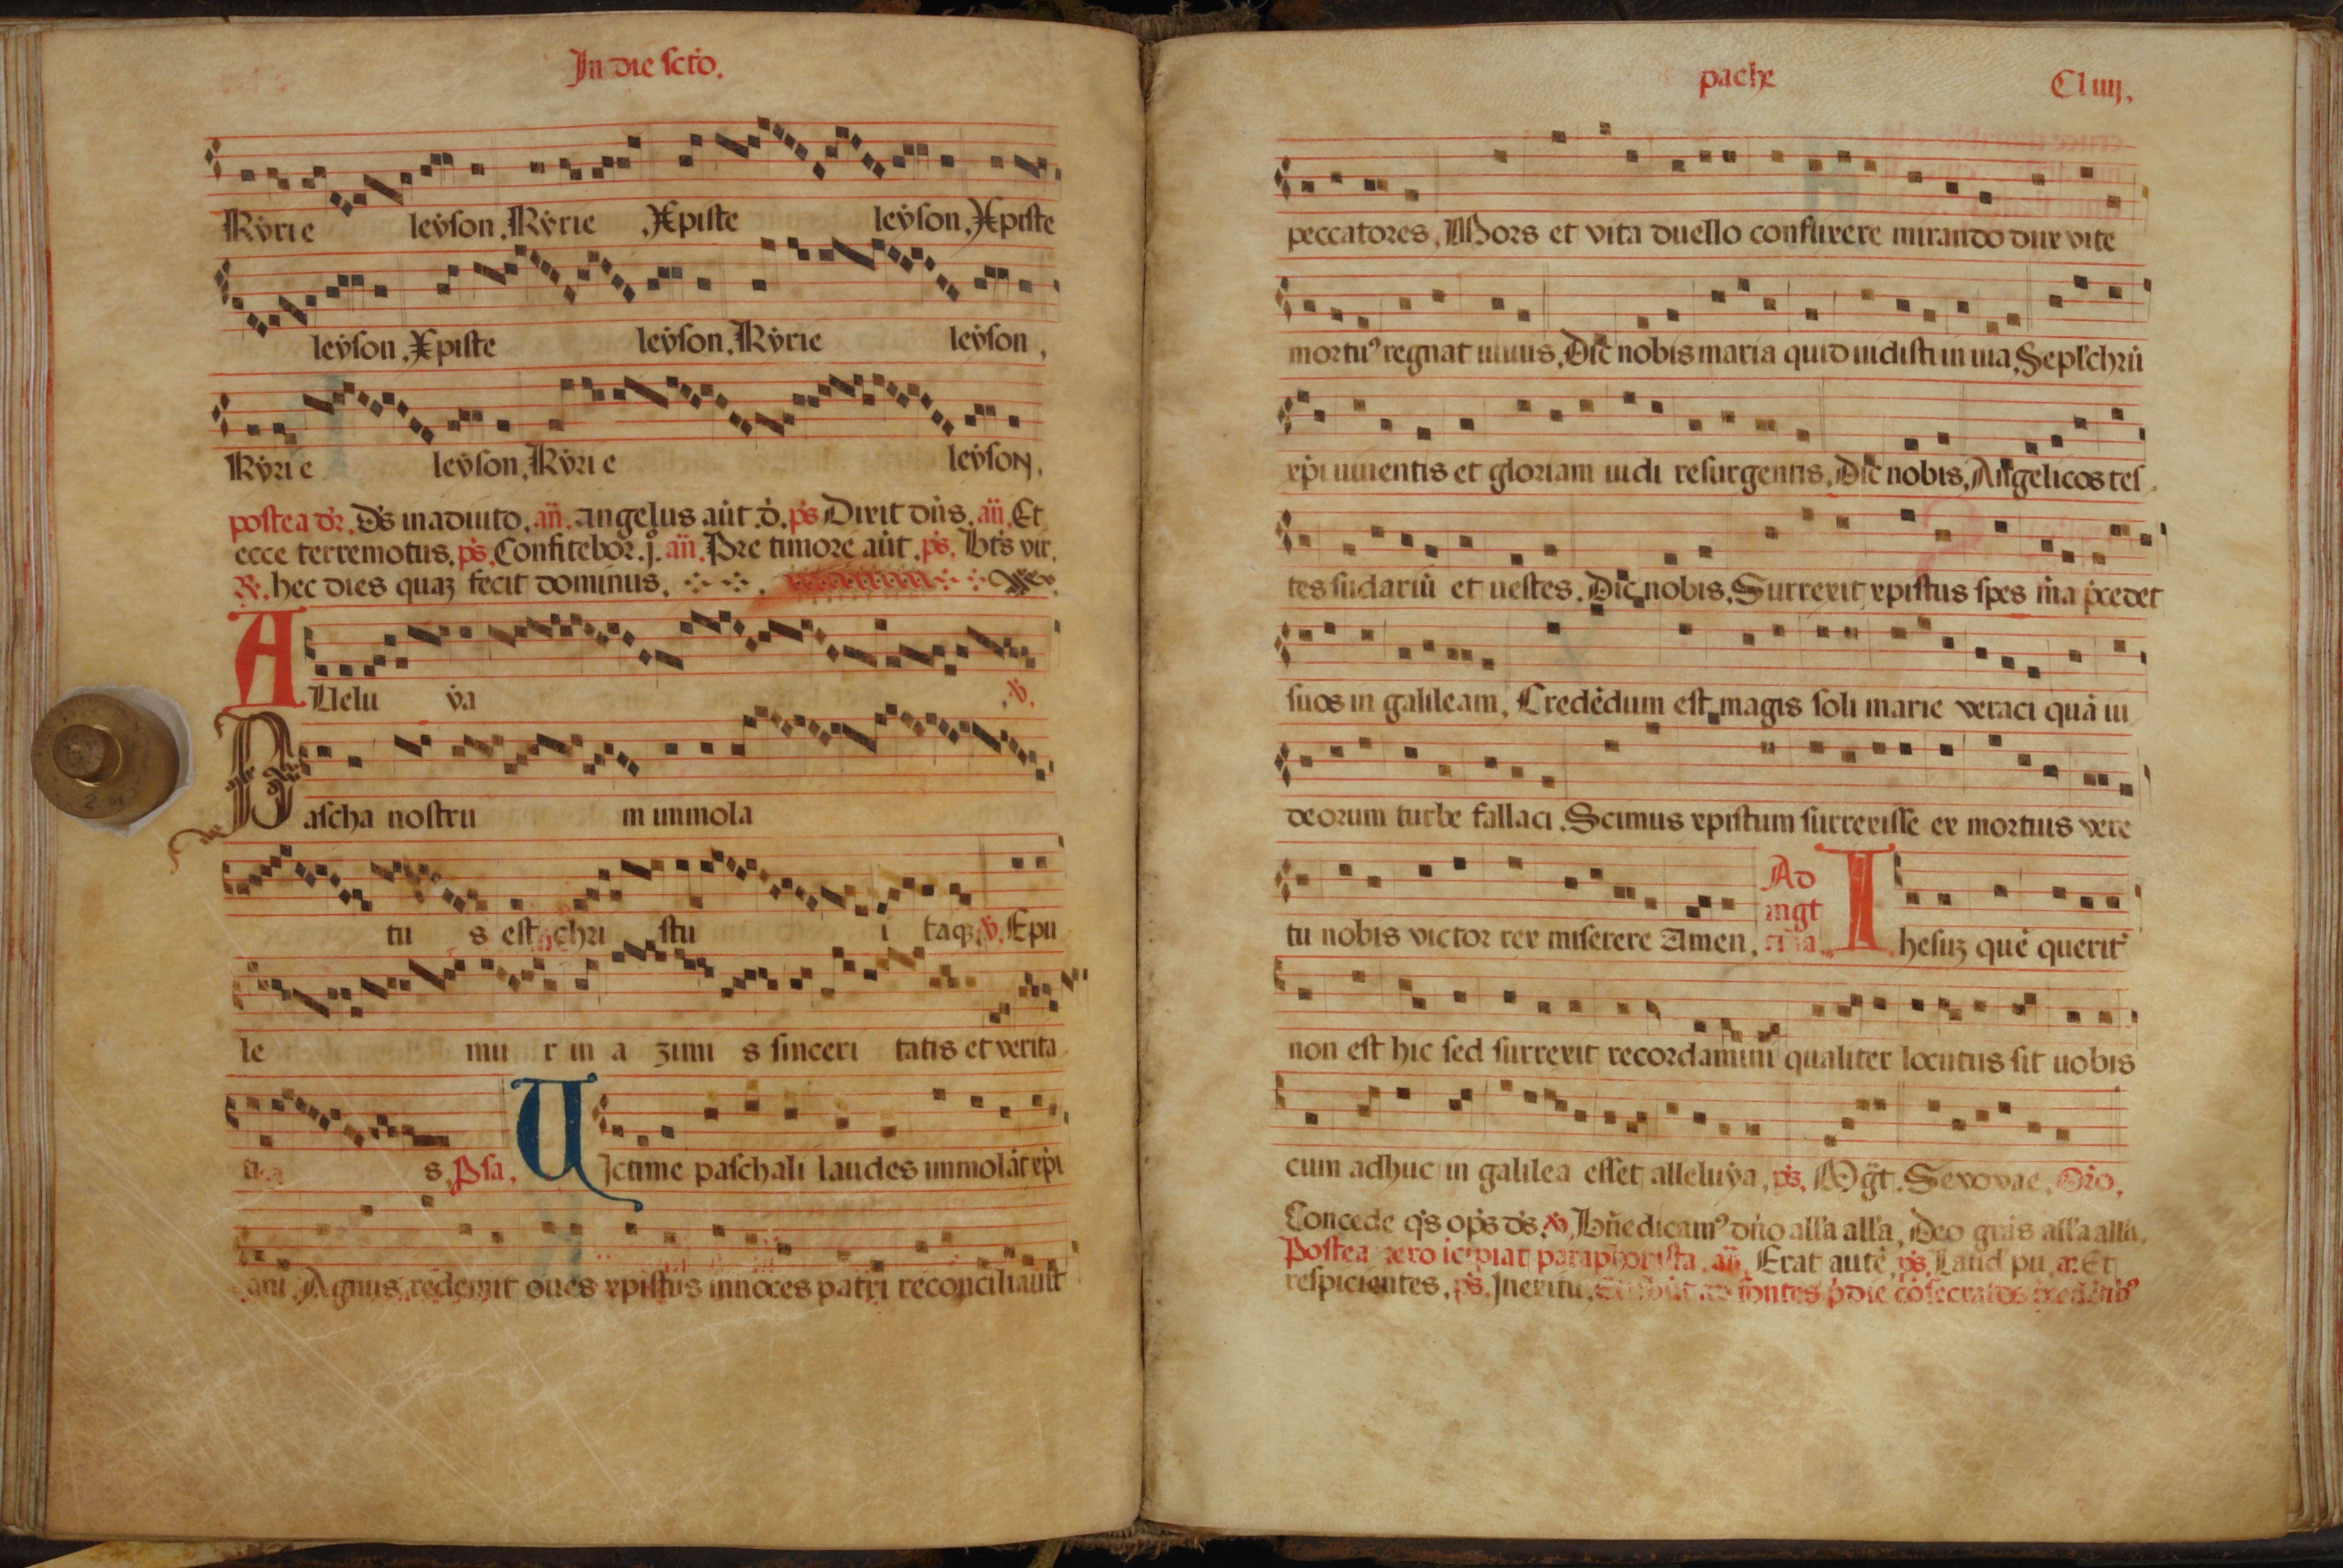 In die scto.
Kyrie leyson. Kyrie Xpiste leyson. Xpiste
leyson. Xpiste leyson. Kyrie leyson.
Kyrie leyson. Kyrie leyson.
postea dr. Ds in adiuto. añ. angelus aut. d. ps Dixit dñs. añ. Et
ecce terremotus. ps. Confitebor. j. añ. Pre timore aut. ps. Bts vir.
R. hec dies quaꝫ fecit dominus.
Allelu ya .v.
Pascha nostru m immola
tu s est chri stu i taqꝫ v. Epu
le mu r in a zimi s sinceri tatis et verita
ti s. Psa. Uictime paschali laudes immolāt xp̄i
ani. Agnus redemit oues xpistus innoces patri reconciliauit
pache Cliiij.
peccatores. Mors et vita duello conflixere mirando dux vite
mortu⁹ regnat uiuus. Dic nobis maria quid uidisti in uia. Sepl'chrū
xp̄i uiuentis et gloriam uidi resurgentis. Dic nobis. Angelicos tes
tes sudariū et uestes. Dic nobis. Surrexit xpistus spes m̄a p̄cedet
suos in galileam. Credēdum est magis soli marie veraci quā iu
deorum turbe fallaci. Scimus xpistum surrexisse ex mortuis vere
tu nobis victor rex miserere Amen. Ad mgt Ihesuꝫ quē querit'
non est hic sed surrexit recordamini qualiter locutus sit uobis
cum adhuc in galilea esset alleluya. ps. Mg̃t. Seuouae. Orõ.
Concede qs ops ds. v. Bñedicam⁹ dño all'a all'a. Deo gras all'a all'a.
Postea vero icipiat paraphorista. añ. Erat autē. ps. Laud pu. a. Et
respicientes. ps. In exitu. fontes